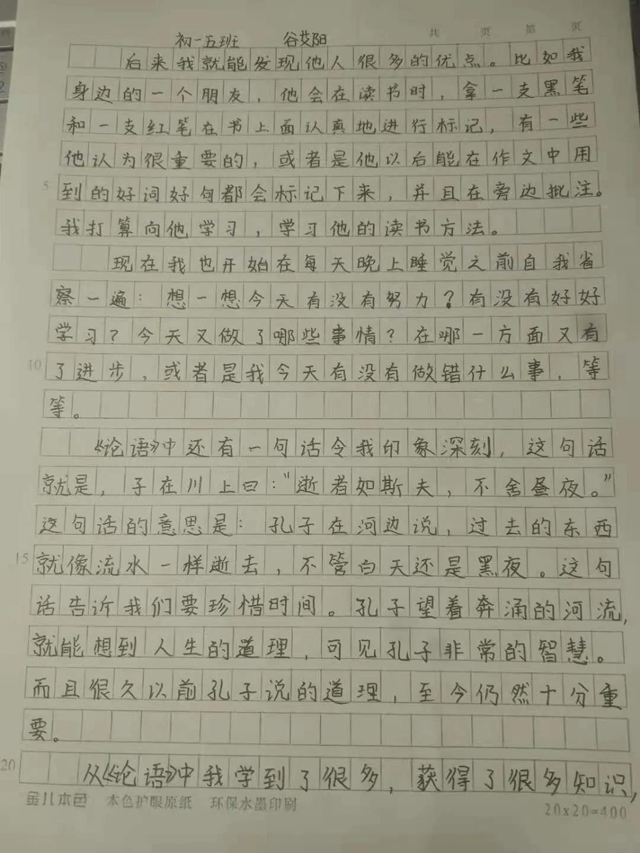 初一五班 谷艾阳 共 页 第 页
后来我就能发现他人很多的优点。比如我
身边的一个朋友，他会在读书时，拿一支黑笔
和一支红笔在书上面认真地进行标记，有一些
他认为很重要的，或者是他以后能在作文中用
5 到的好词好句都会标记下来，并且在旁边批注。
我打算向他学习，学习他的读书方法。
现在我也开始在每天晚上睡觉之前自我省
察一遍：想一想今天有没有努力？有没有好好
学习？今天又做了哪些事情？在哪一方面又有
10 了进步，或者是我今天有没有做错什么事，等
等。
《论语》中还有一句话令我印象深刻，这句话
就是，子在川上曰：“逝者如斯夫，不舍昼夜。”
这句话的意思是：孔子在河边说，过去的东西
15 就像流水一样逝去，不管白天还是黑夜。这句
话告诉我们要珍惜时间。孔子望着奔涌的河流，
就能想到人生的道理，可见孔子非常的智慧。
而且很久以前孔子说的道理，至今仍然十分重
要。
20 从《论语》中我学到了很多，获得了很多知识，
本色护眼原纸 环保水墨印刷 20x20=400